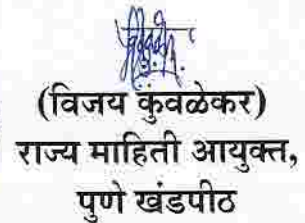 (विजय कुंवळेकर)
राज्य माहिती आयुक्त,
पुणे खंडपीठ